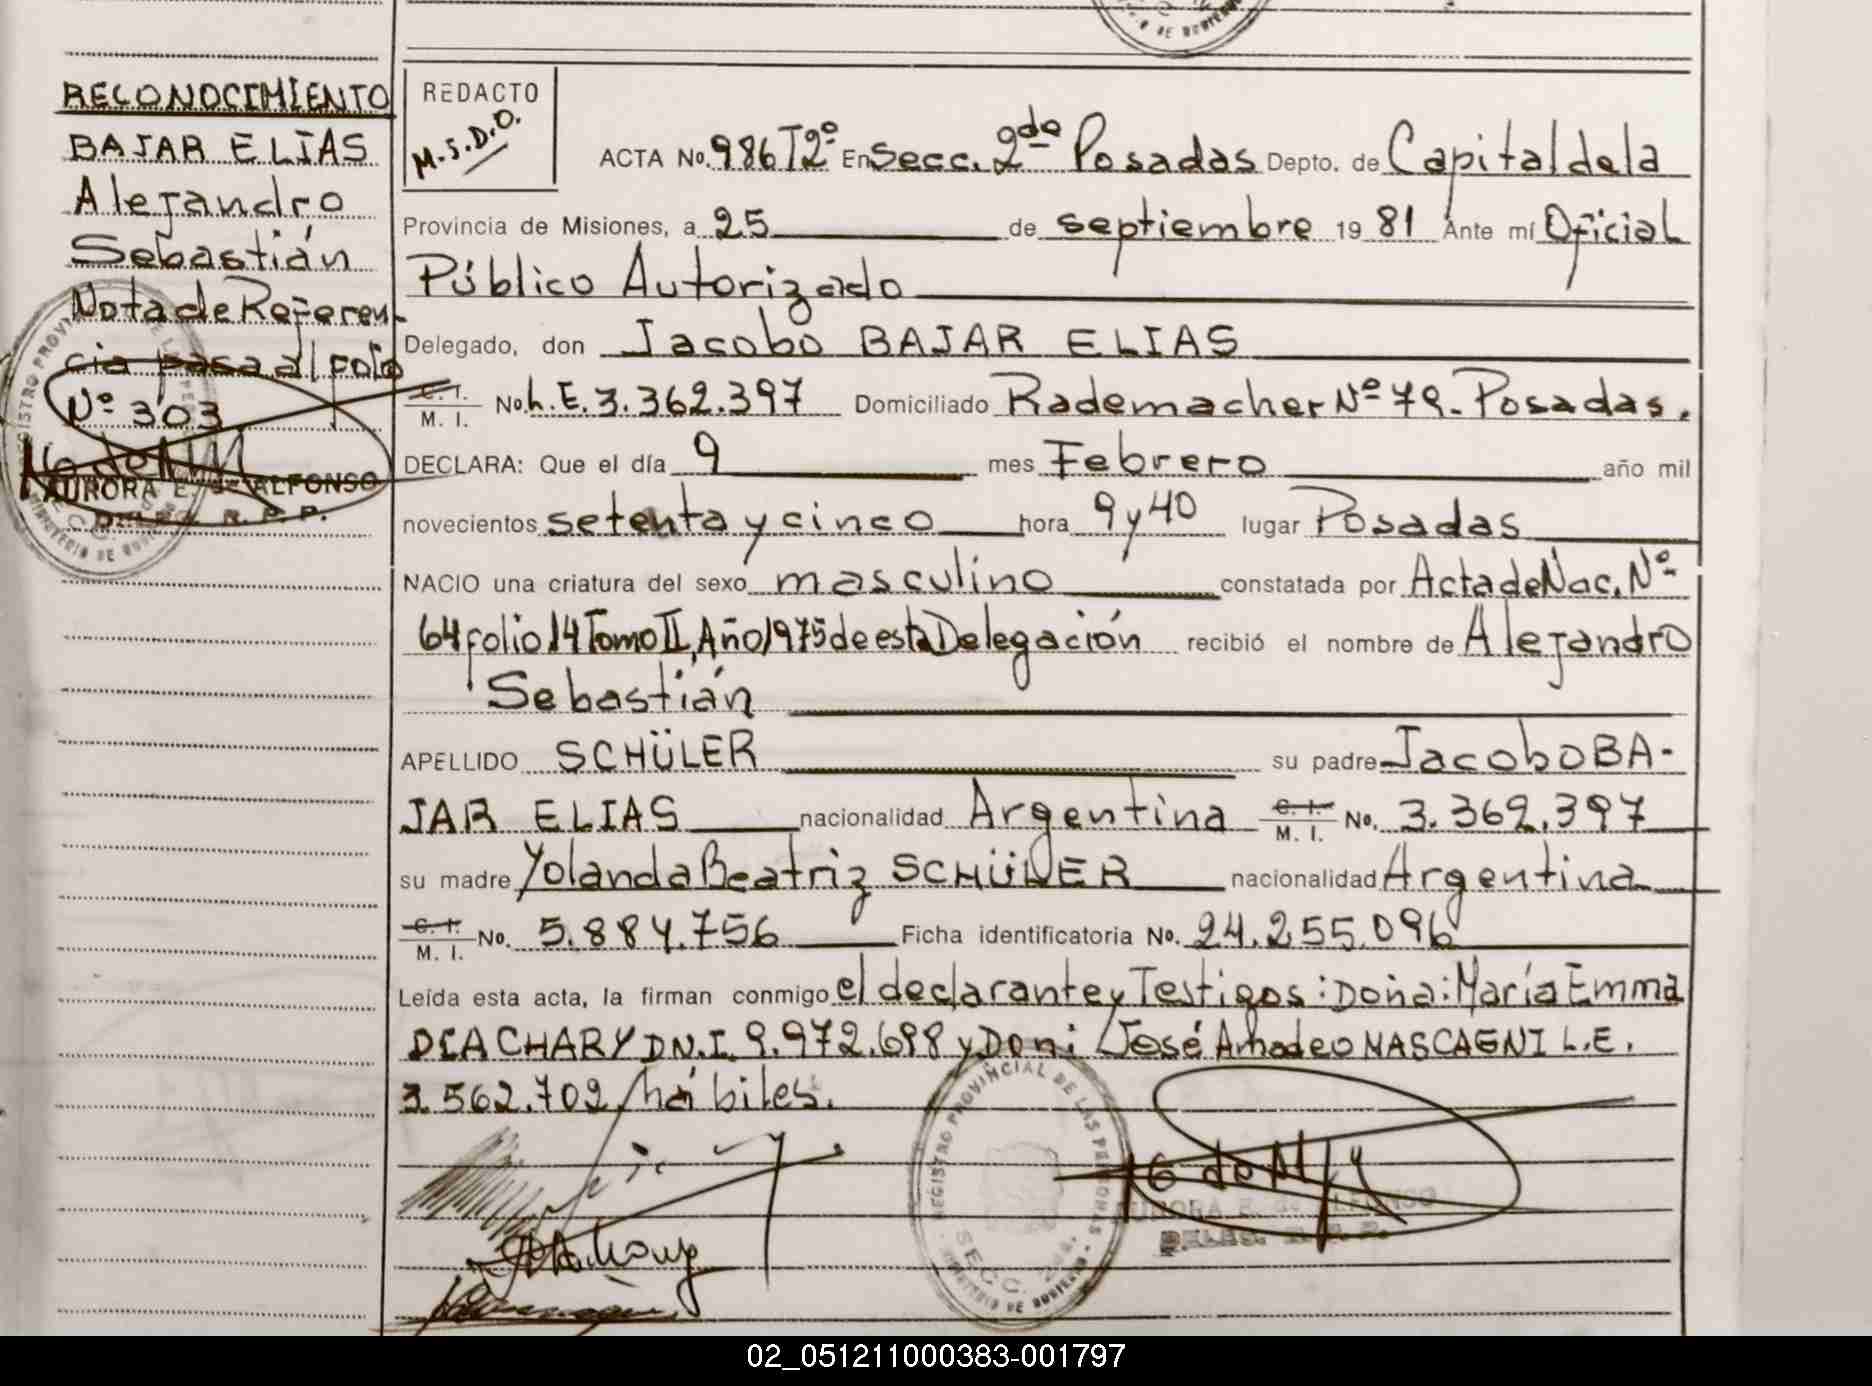 RECONOCIMIENTO
BAJAR ELIAS
Alejandro
Sebastián
Nota de Referen-
cia pasa al folio
Nº 303
AURORA E. de ALFONSO
DELEG. R. P. P.
REDACTO
M.S.D.O.
ACTA No. 986 T2º En Secc. 2da Posadas Depto. de Capital de la
Provincia de Misiones, a 25 de septiembre 19 81 Ante mí Oficial
Público Autorizado
Delegado, don Jacobo BAJAR ELIAS
C. I. M. I. No. L.E. 3.362.397 Domiciliado Rademacher Nº 79- Posadas.
DECLARA: Que el día 9 mes Febrero año mil
novecientos setenta y cinco hora 9 y 40 lugar Posadas
NACIO una criatura del sexo masculino constatada por Acta de Nac. Nº
64 folio 14 Tomo II, Año 1975 de esta Delegación recibió el nombre de Alejandro
Sebastián
APELLIDO SCHÜLER su padre Jacobo BA-
JAR ELIAS nacionalidad Argentina C. I. M. I. No. 3.362.397
su madre Yolanda Beatriz SCHÜLER nacionalidad Argentina
C. I. M. I. No. 5.884.756 Ficha identificatoria No. 24.255.096
Leída esta acta, la firman conmigo el declarante y Testigos: Doña: María Emma
DEACHARY DN.I. 9.972.698 y Don: José Amadeo MASCAGNI L.E.
3.562.702 hábiles.
REGISTRO PROVINCIAL DE LAS PERSONAS
SECC. 2da.
MINISTERIO DE GOBIERNO
AURORA E. de ALFONSO
DELEG. R. P. P.
02_051211000383-001797